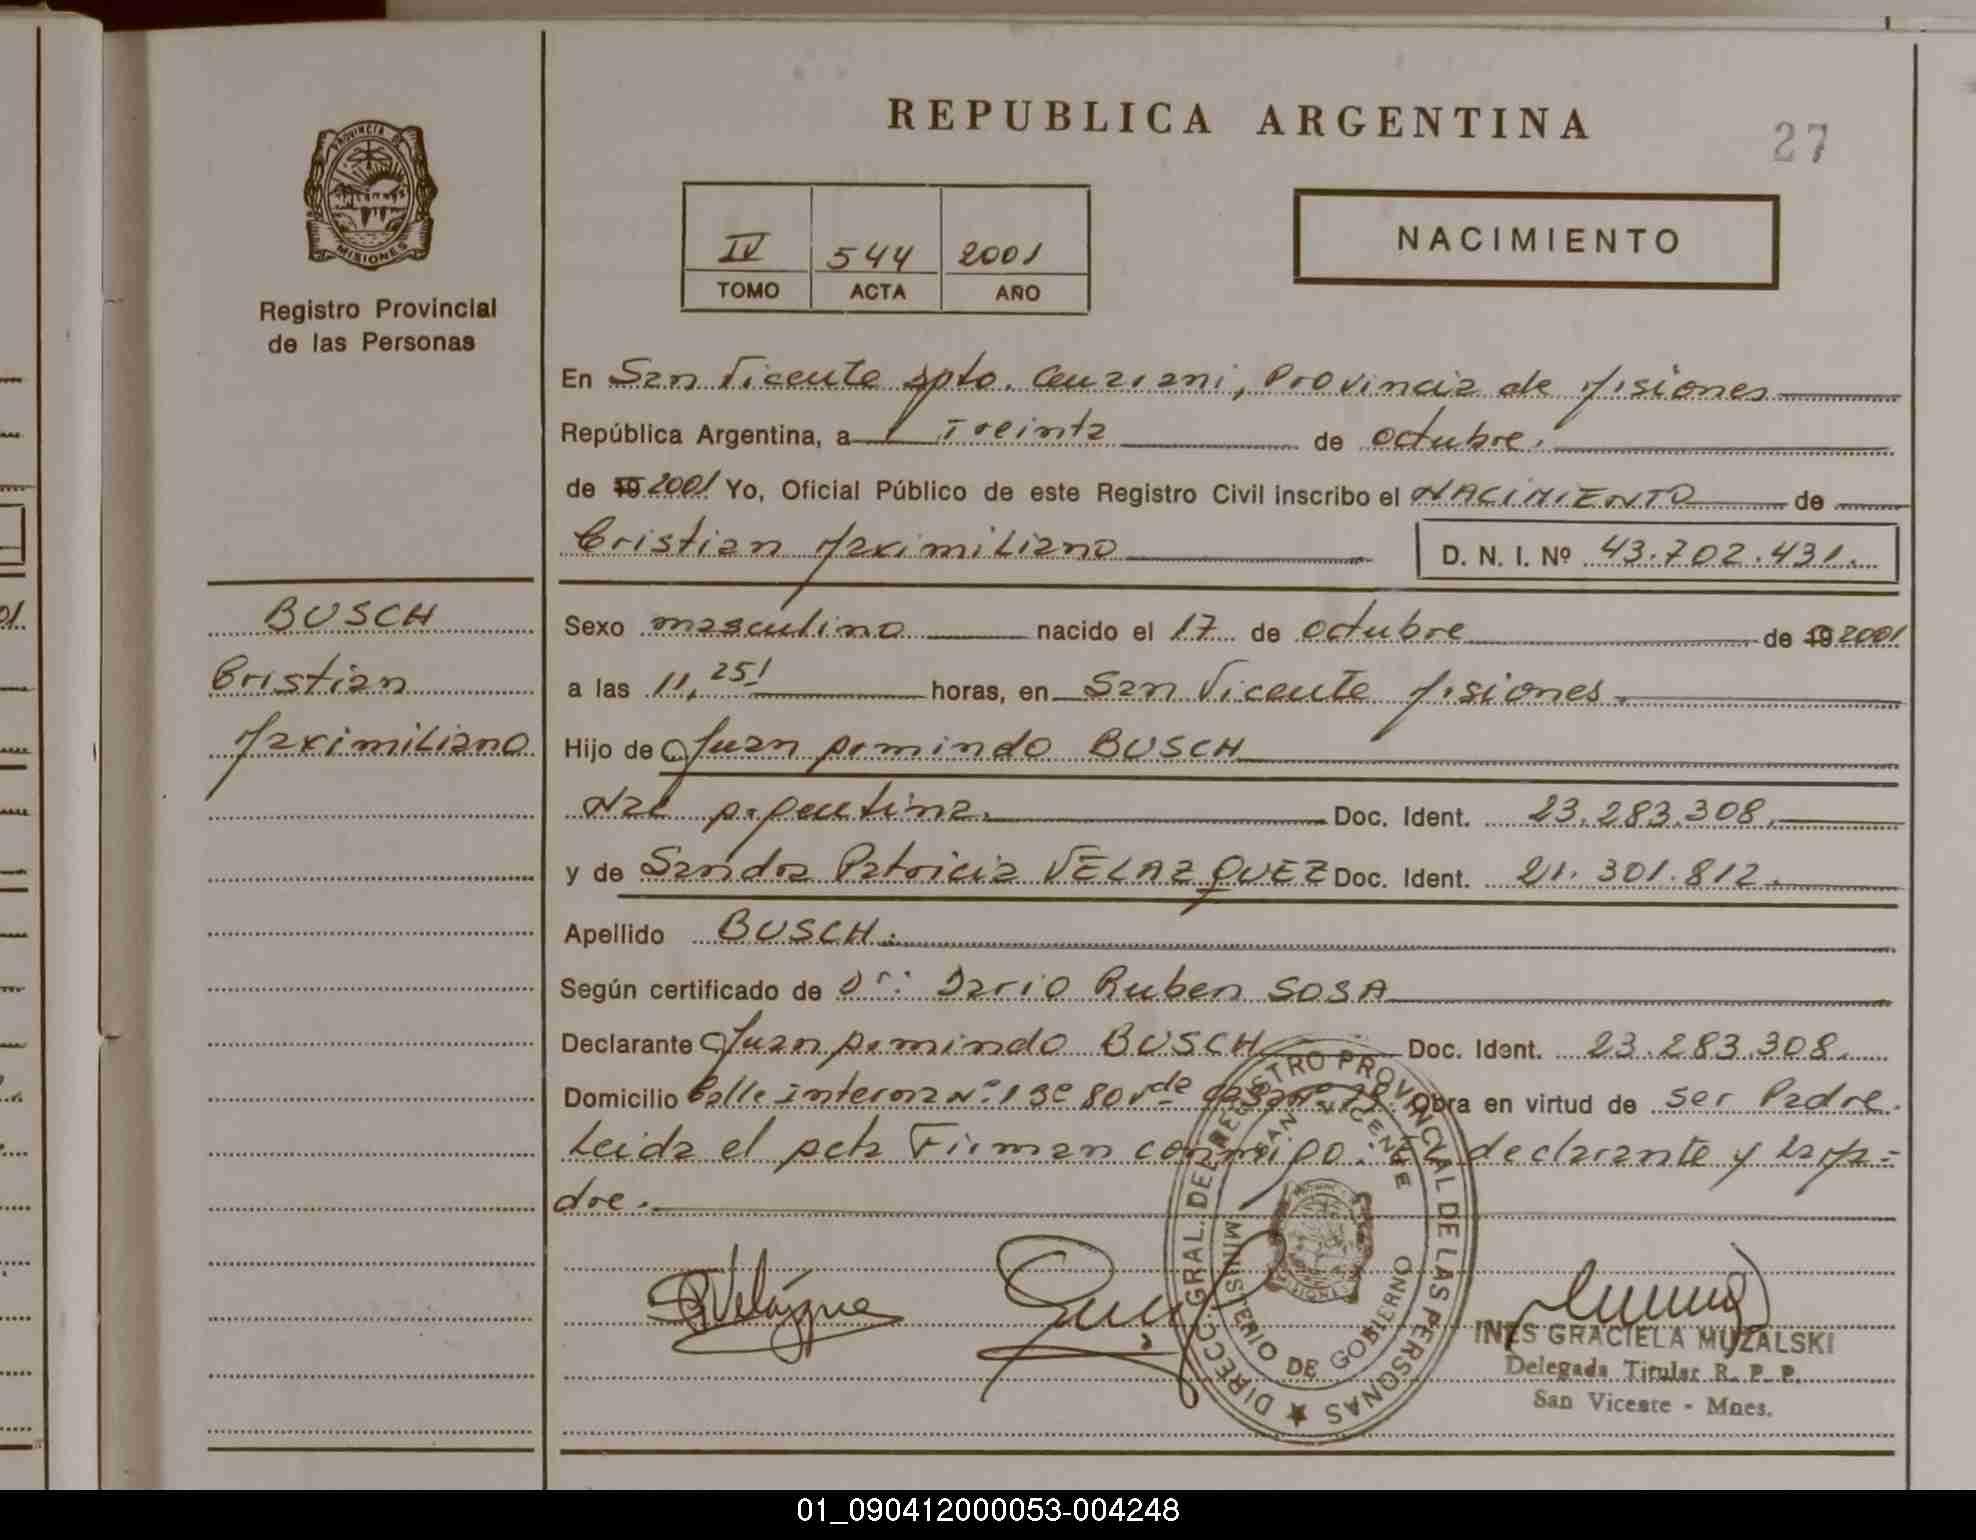 REPUBLICA ARGENTINA
27
PROVINCIA DE
MISIONES
Registro Provincial
de las Personas
IV 544 2001
TOMO ACTA AÑO
NACIMIENTO
En San Vicente Dpto. Guarani, Provincia de Misiones
República Argentina, a Treinta de octubre.
de 19 2001 Yo, Oficial Público de este Registro Civil inscribo el NACIMIENTO de
Cristian Maximiliano D. N. I. Nº 43.702.431.
BUSCH
Cristian
Maximiliano
Sexo masculino nacido el 17 de octubre de 19 2001
a las 11,25' horas, en San Vicente Misiones.
Hijo de Juan Armindo BUSCH
Nac Argentina. Doc. Ident. 23.283.308.
y de Sandra Patricia VELAZQUEZ Doc. Ident. 21.301.812.
Apellido BUSCH.
Según certificado de Dr: Dario Ruben SOSA
Declarante Juan Armindo BUSCH Doc. Ident. 23.283.308.
Domicilio Calle interna Nº 13 80 Obra en virtud de ser Padre.
Leida el Acta Firman conmigo: El declarante y la Ma=
dre.
DIRECC. GRAL. DEL REGISTRO PROVINCIAL DE LAS PERSONAS
SAN VICENTE
MINISTERIO DE GOBIERNO
Velázque
INES GRACIELA MUZALSKI
Delegada Titular R. P. P.
San Vicente - Mnes.
01_090412000053-004248